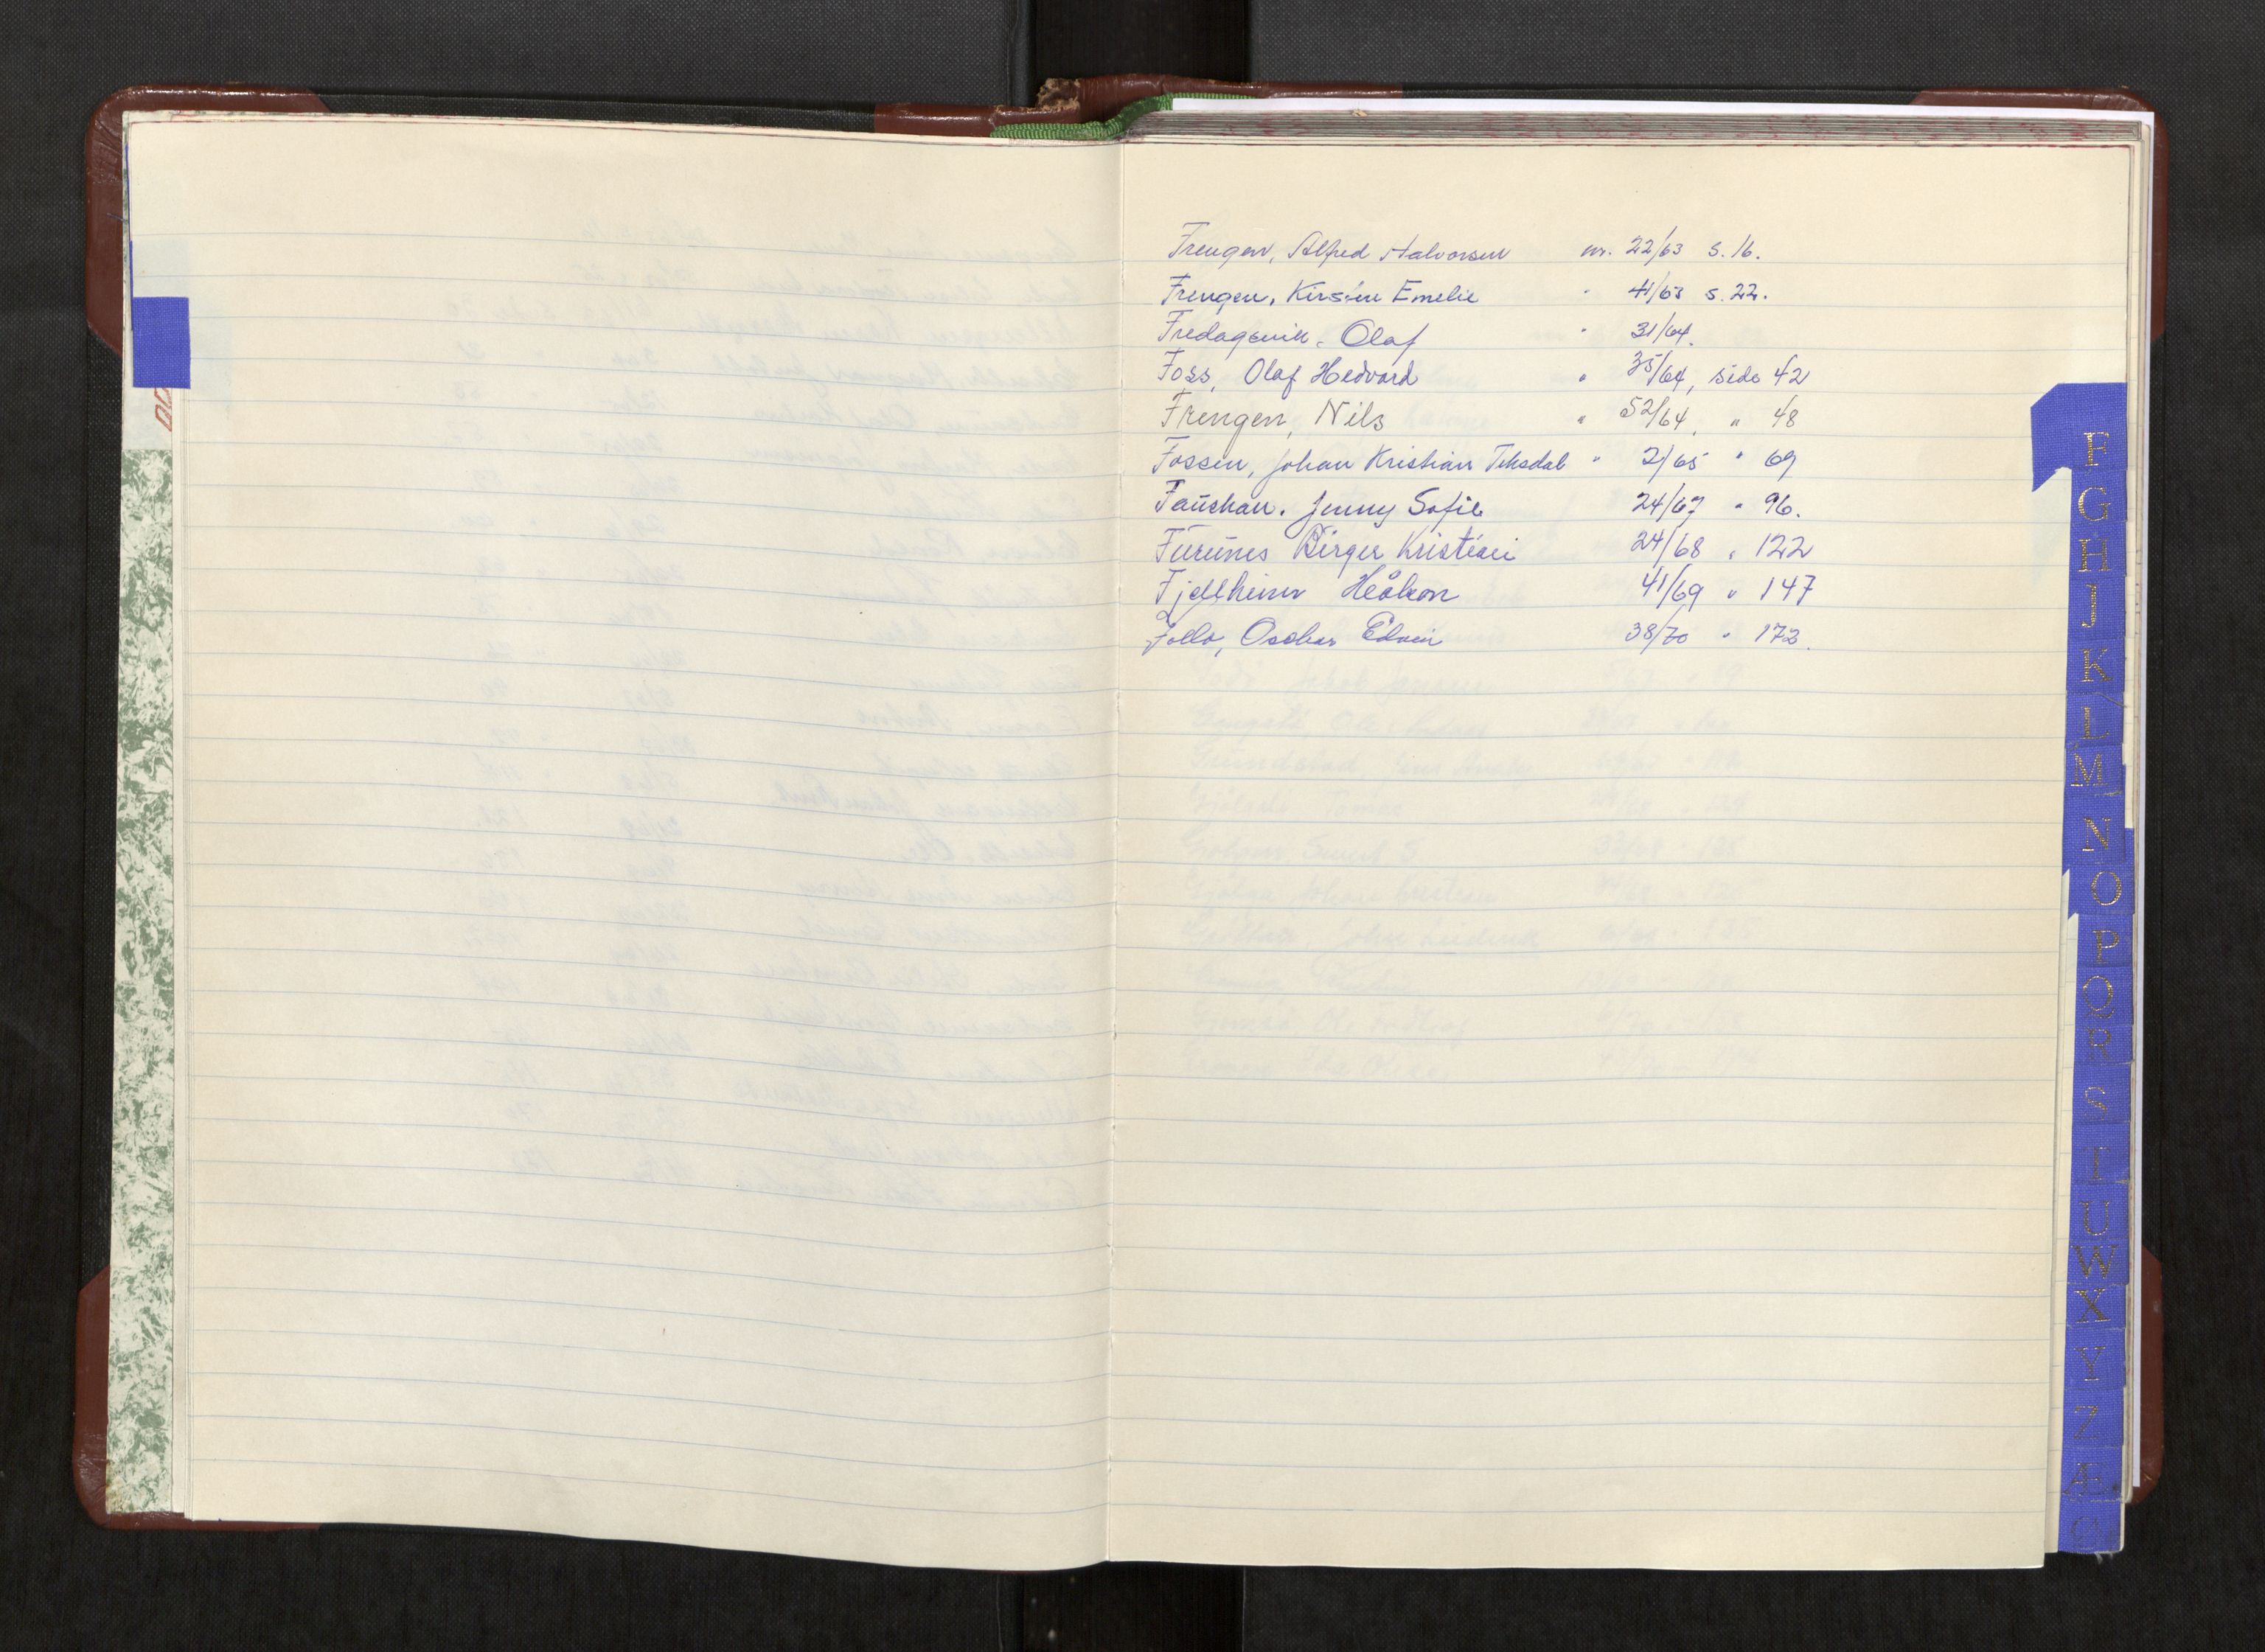 Frengen, Alfred Halvorsen nr. 22/63 s. 16.
Frengen, Kirsten Emelie " 41/63 s. 22.
Fredagsvik, Olaf " 31/64.
Foss, Olaf Hedvard " 35/64, side 42
Frengen, Nils " 52/64, " 48
Fossen, Johan Kristian Teksdal " 2/65 " 69
Fauskan. Jenny Sofie 24/67 " 96.
Furunes Birger Kristian 24/68 " 122
Fjellheim Håkon 41/69 " 147
Follo, Oskar Edvin 38/70 " 172.
F
G
H
J
K
L
M
N
O
P
Q
R
S
T
U
W
X
Y
Z
Æ